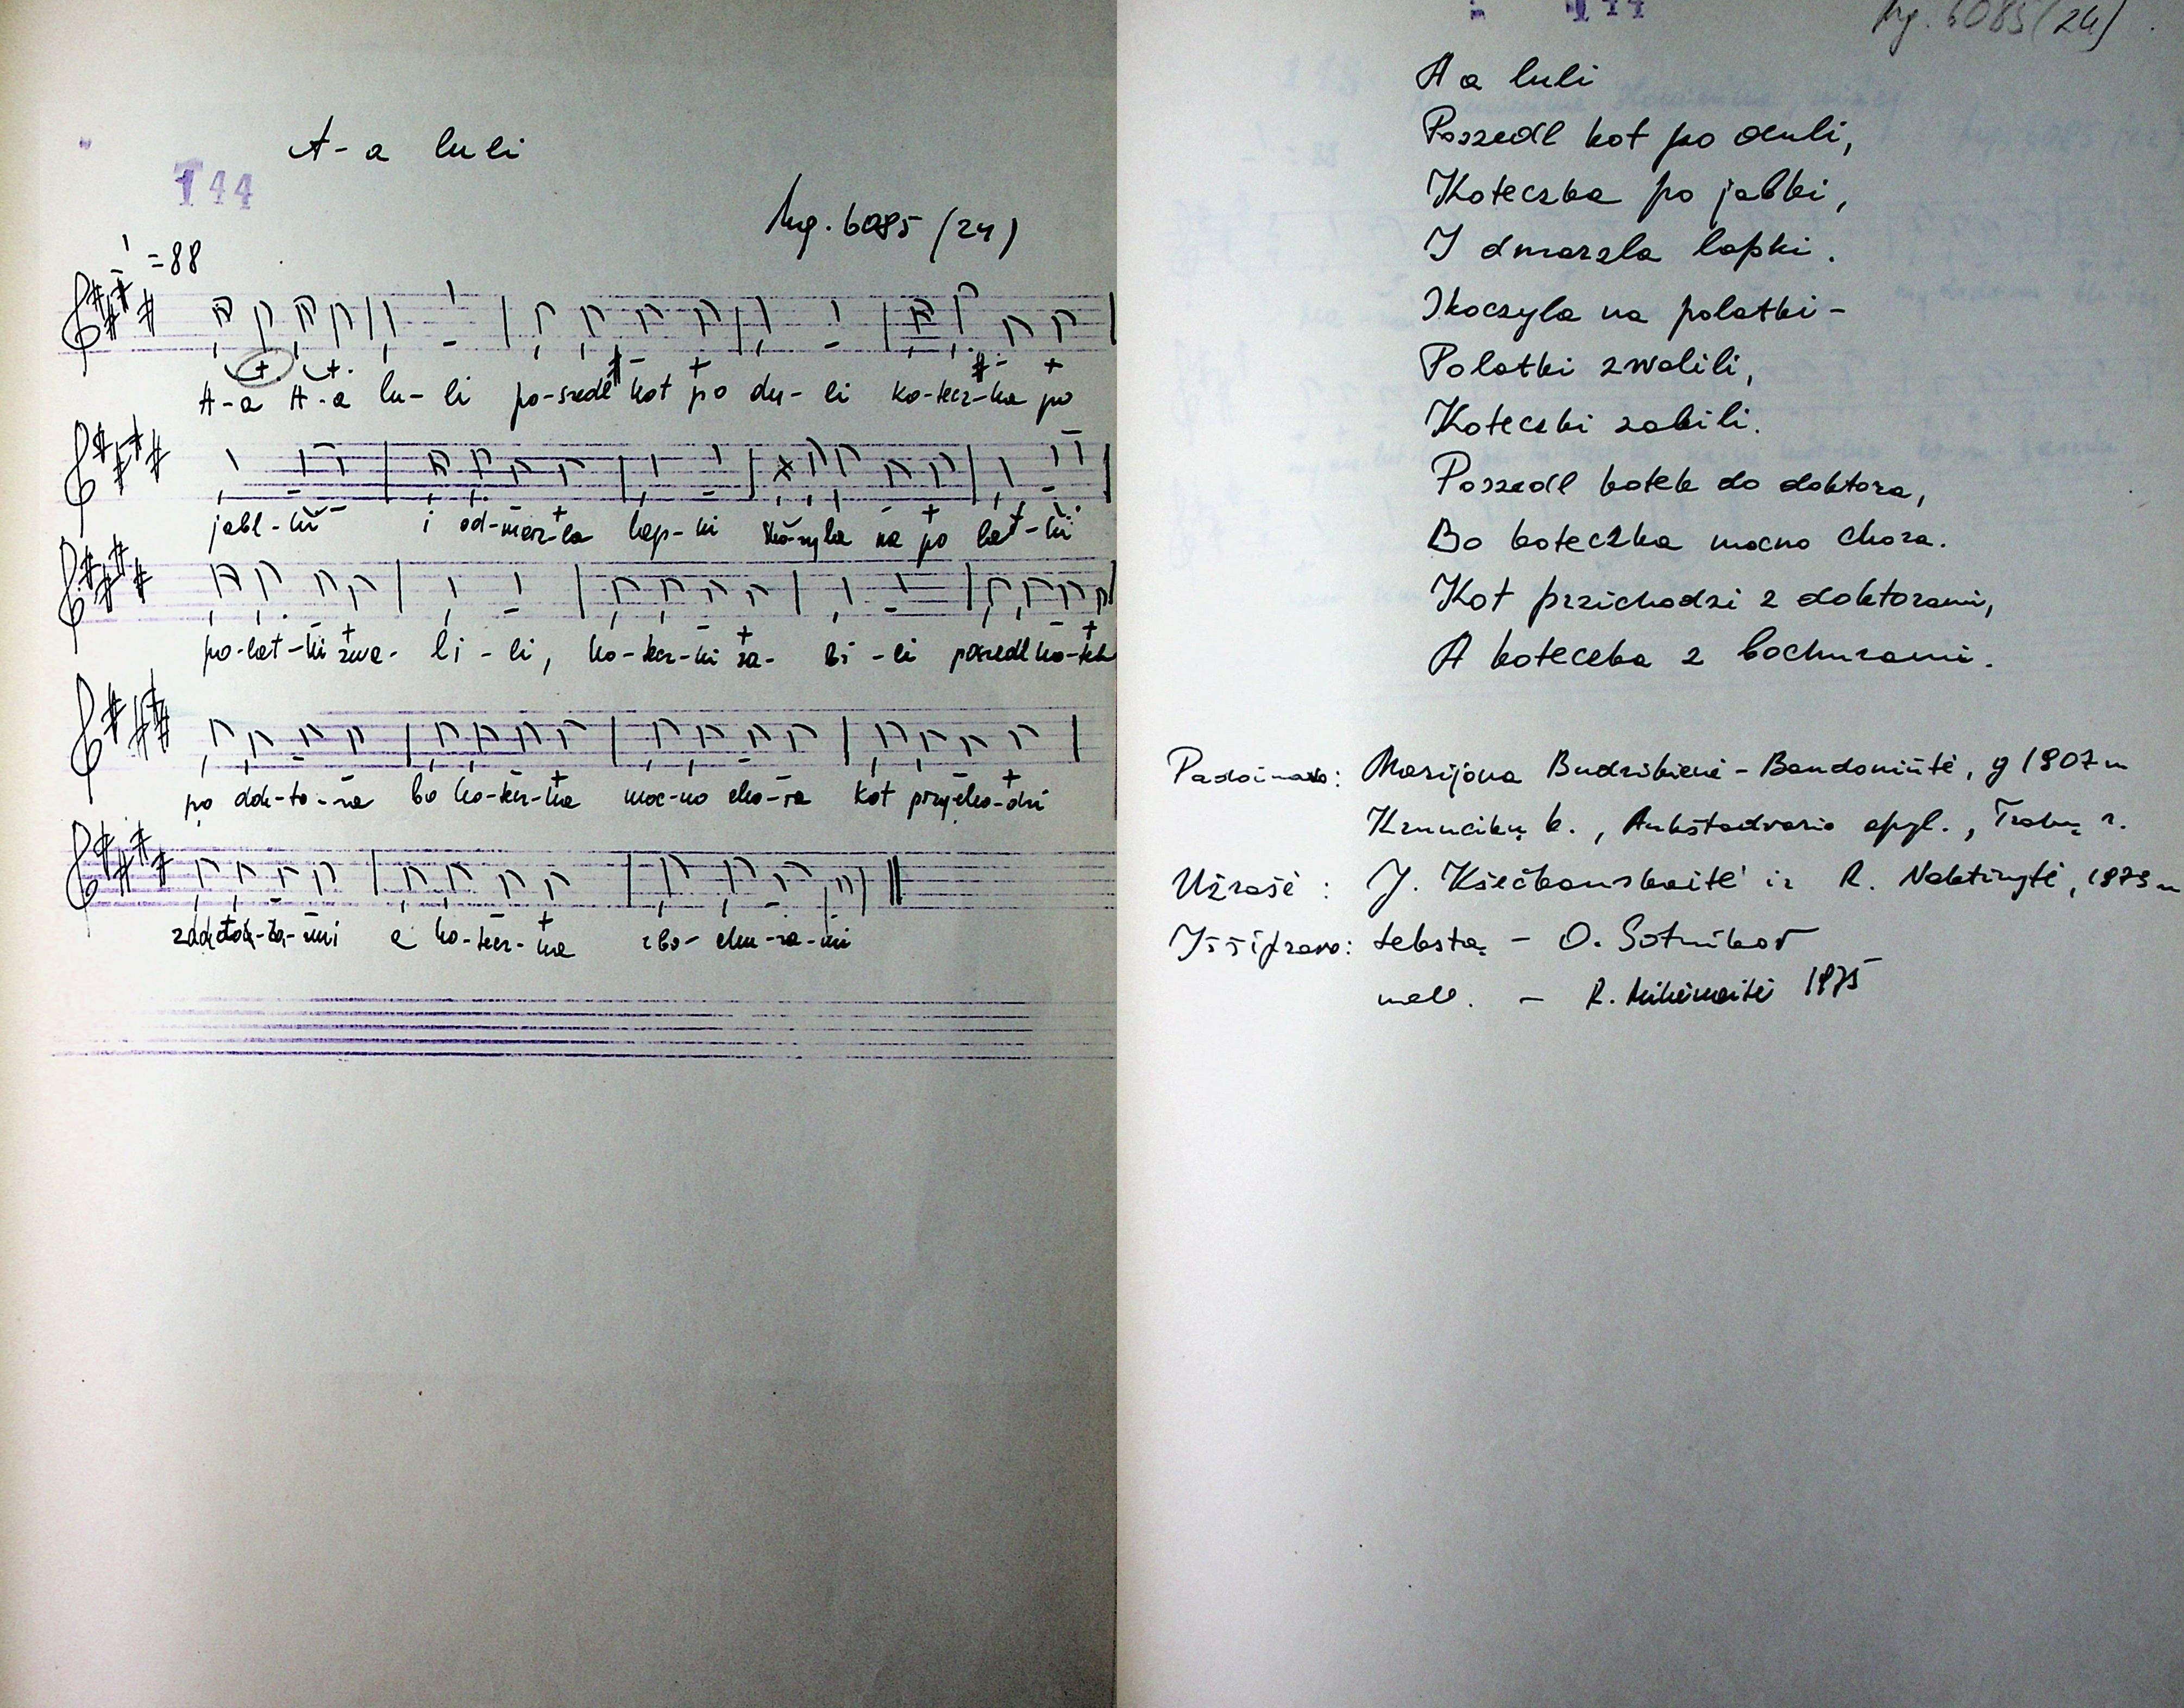 A-a luli
144
Mg. 6085 (24)
=88
A-a A-a lu-li po-szedl kot po du-li ko-tecz-ka po
jabl-ki i od-marz-la lap-ki sko-czyla na po lat-ki
po-lat-ki zwa-li-li, ko-tecz-ki za-bi-li poszedl ko-tek
po dok-to-ra bo ko-tecz-ka moc-no cho-ra kot przy-cho-dzi
z dok-to-ra-mi a ko-tecz-ka z bo-chu-ra-mi
144
Mg. 6085 (24)
A a luli
Poszedl kot po duli,
Koteczka po jabki,
I dmarzla lapki.
Skoczyla na polatki-
Polatki zwalili,
Koteczki zabili.
Poszedl kotek do doktora,
Bo koteczka mocno chora.
Kot przichodzi z doktorami,
A koteczka z bochurami.
Padainavo: Marijona Budzikienė-Bandoniūtė, g 1907 m
k., Aukštadvario apyl., Trakų r.
Užrašė: J. ir R. Naktinytė, 1973 m
Iššifravo: tekstą - O. Sotnikov
mel. - R. 1975